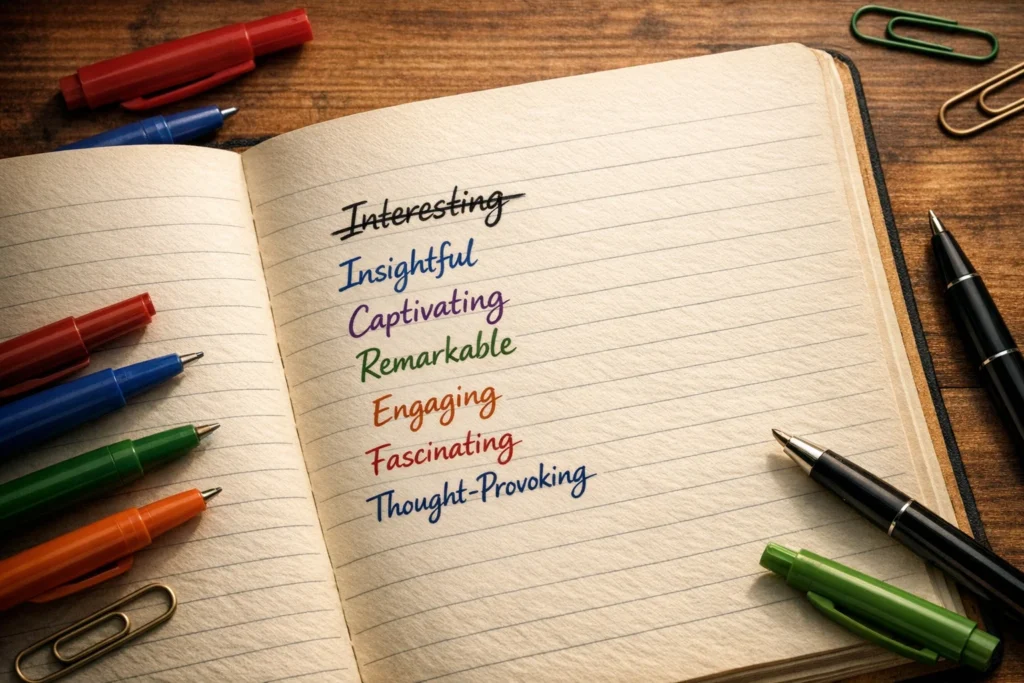 Interesting
Insightful
Captivating
Remarkable
Engaging
Fascinating
Thought-Provoking